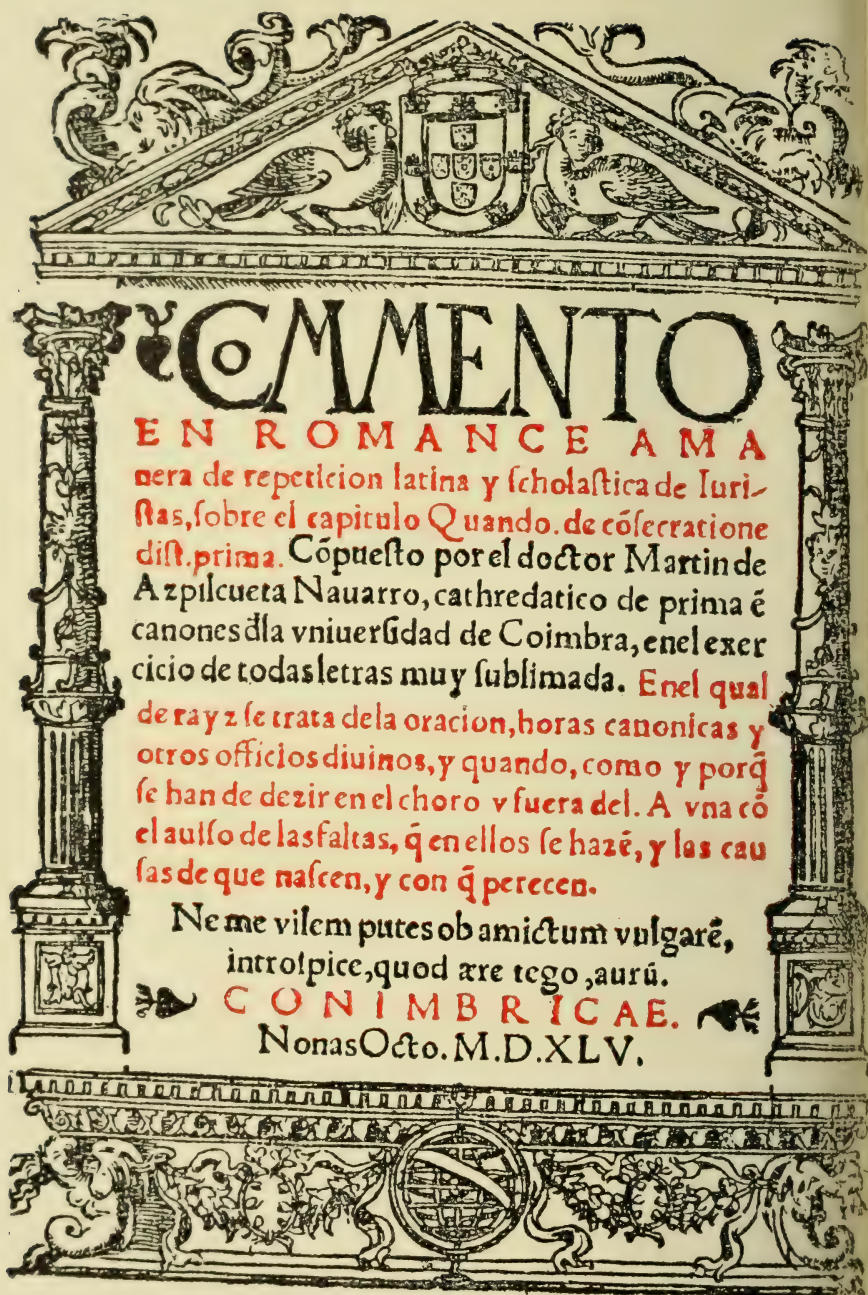 COMMENTO
EN ROMANCE A MA
nera de repeticion latina y ſcholaſtica de Iuri-
ſtas, ſobre el capitulo Quando. de cõſecratione
diſt. prima. Cõpueſto por el doctor Martin de
Azpilcueta Nauarro, cathredatico de prima ẽ
canones đla vniuerſidad de Coimbra, enel exer
cicio de todas letras muy ſublimada. Enel qual
de rayz ſe trata dela oracion, horas canonicas y
otros officios diuinos, y quando, como y porq̃
ſe han de dezir en el choro y fuera del. A vna cõ
el auiſo de las faltas, q̃ en ellos ſe hazẽ, y las cau
ſas de que naſcen, y con q̃ perecen.
Ne me vilem putes ob amictum vulgarẽ,
introſpice, quod ære tego, aurũ.
CONIMBRICAE.
Nonas Octo. M.D.XLV.